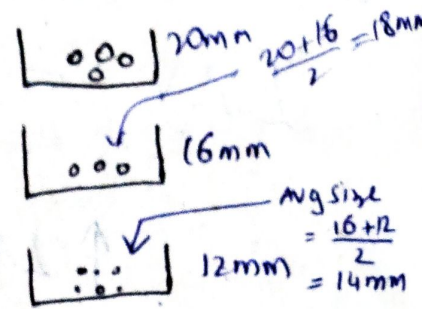 20mm
20+16
2
=18mm
16mm
Avg size
= 16+12
2
12mm
= 14mm